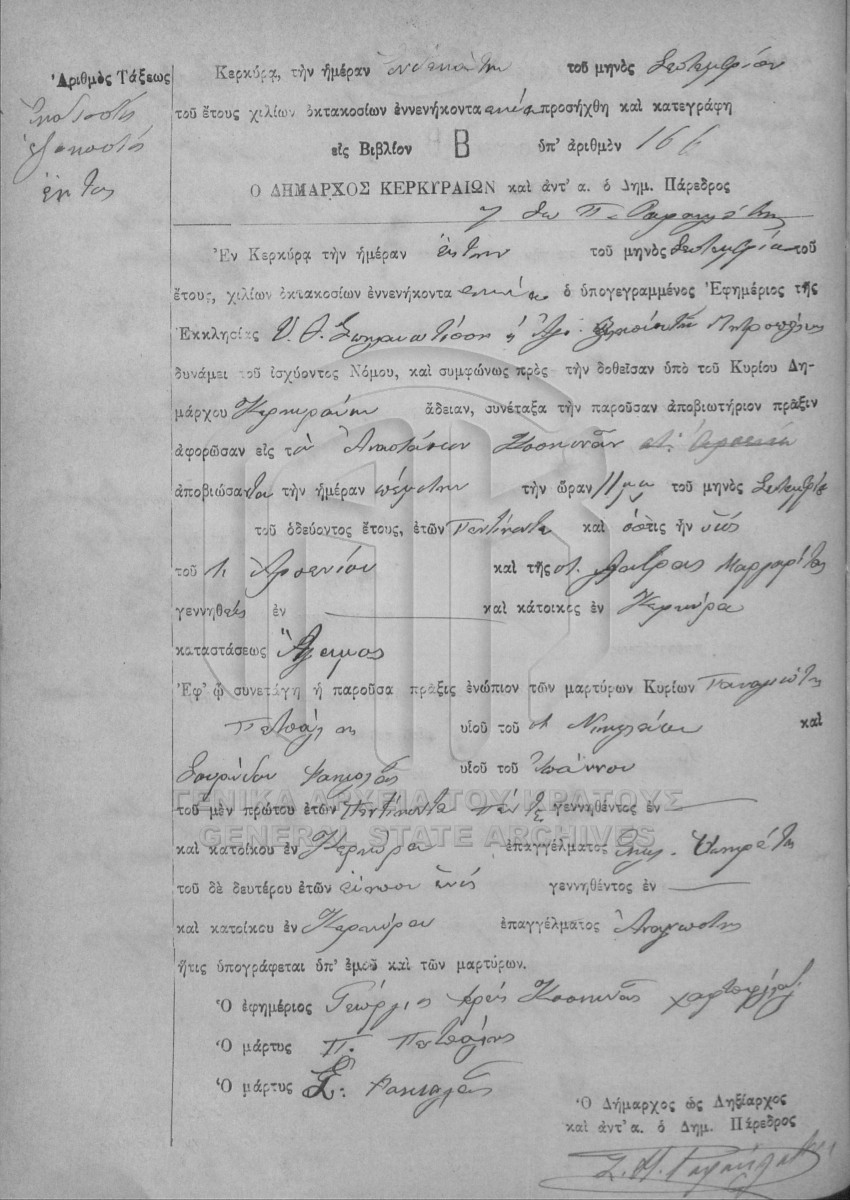 Ἀριθμὸς Τάξεως
ἑκατοστὴ
ἑξηκοστὴ
ἕκτος
Κερκύρᾳ, τὴν ἡμέραν ἑνδεκάτην τοῦ μηνὸς Σεπτεμβρίου
τοῦ ἔτους χιλίων ὀκτακοσίων ἐννενήκοντα προσήχθη καὶ κατεγράφη
εἰς Βιβλίον Β ὑπ' ἀριθμὸν 166
Ο ΔΗΜΑΡΧΟΣ ΚΕΡΚΥΡΑΙΩΝ καὶ ἀντ' α. ὁ Δημ. Πάρεδρος
Ἐν Κερκύρᾳ τὴν ἡμέραν ἕκτην τοῦ μηνὸς Σεπτεμβρίου τοῦ
ἔτους, χιλίων ὀκτακοσίων ἐννενήκοντα ὁ ὑπογεγραμμένος Ἐφημέριος τῆς
Ἐκκλησίας Υ. Θ. Σπηλαιωτίσσης Μητροπόλεως
δυνάμει τοῦ ἰσχύοντος Νόμου, καὶ συμφώνως πρὸς τὴν δοθεῖσαν ὑπὸ τοῦ Κυρίου Δη-
μάρχου Κερκυραίων ἄδειαν, συνέταξα τὴν παροῦσαν ἀποβιωτήριον πρᾶξιν
ἀφορῶσαν εἰς τὸν Ἀναστάσιον Κοσκινᾶν
ἀποβιώσαντα τὴν ἡμέραν πέμπτην τὴν ὥραν 11 μμ τοῦ μηνὸς Σεπτεμβρίου
τοῦ ὁδεύοντος ἔτους, ἐτῶν Πεντήκοντα καὶ ὅστις ἦν υἱός
τοῦ π. Ἀρσενίου καὶ τῆς Μαργαρίτας
γεννηθεὶς ἐν καὶ κάτοικος ἐν Κερκύρᾳ
καταστάσεως Ἄγαμος
Ἐφ' ᾧ συνετάγη ἡ παροῦσα πρᾶξις ἐνώπιον τῶν μαρτύρων Κυρίων Παναγιώτης
Πετσάλης υἱοῦ τοῦ π. Νικολάου καὶ
Σπυρίδων υἱοῦ τοῦ Ἰωάννου
τοῦ μὲν πρώτου ἐτῶν Πεντήκοντα πέντε γεννηθέντος ἐν
καὶ κατοίκου ἐν Κερκύρᾳ ἐπαγγέλματος Ὑπηρέτης
τοῦ δὲ δευτέρου ἐτῶν εἴκοσι ἑνός γεννηθέντος ἐν
καὶ κατοίκου ἐν Κερκύρᾳ ἐπαγγέλματος Ἀναγνώστης
ἥτις ὑπογράφεται ὑπ' ἐμοῦ καὶ τῶν μαρτύρων.
Ὁ ἐφημέριος Γεώργιος ἱερεὺς Κοσκινᾶς
Ὁ μάρτυς Π. Πετσάλης
Ὁ μάρτυς Σ.
Ὁ Δήμαρχος ὡς Ληξίαρχος
καὶ ἀντ' α. ὁ Δημ. Πάρεδρος
ΓΕΝΙΚΑ ΑΡΧΕΙΑ ΤΟΥ ΚΡΑΤΟΥΣ
GENERAL STATE ARCHIVES